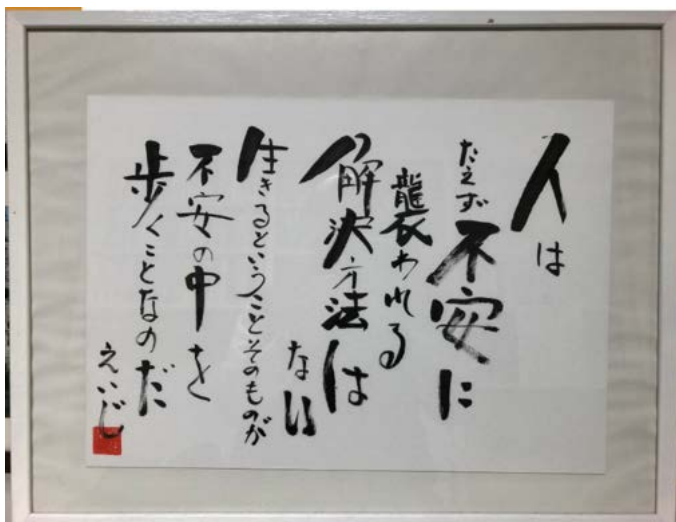 人は
たえず不安に
襲われる
解決方法は
ない
生きるということそのものが
不安の中を
歩くことなのだ
えいじ